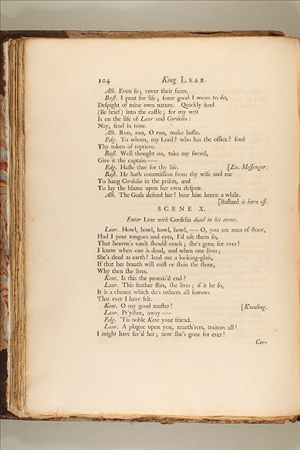 104 King LEAR.
Alb. Even so; cover their faces.
Bast. I pant for life; some good I mean to do,
Despight of mine own nature. Quickly send
(Be brief) into the castle; for my writ
Is on the life of Lear and Cordelia:
Nay, send in time.
Alb. Run, run, O run, make haste.
Edg. To whom, my Lord? who has the office? send
Thy token of reprieve.
Bast. Well thought on, take my sword,
Give it the captain —
Edg. Haste thee for thy life. [Ex. Messenger.
Bast. He hath commission from thy wife and me
To hang Cordelia in the prison, and
To lay the blame upon her own despair.
Alb. The Gods defend her! bear him hence a while.
[Bastard is born off.
SCENE X.
Enter Lear with Cordelia dead in his arms.
Lear. Howl, howl, howl, howl, — O, you are men of stone,
Had I your tongues and eyes, I'd use them so,
That heaven's vault should crack; she's gone for ever!
I know when one is dead, and when one lives;
She's dead as earth! lend me a looking-glass,
If that her breath will mist or stain the stone,
Why then she lives.
Kent. Is this the promis'd end?
Lear. This feather stirs, she lives; if it be so,
It is a chance which do's redeem all sorrows
That ever I have felt.
Kent. O my good master! [Kneeling.
Lear. Pr'ythee, away —
Edg. 'Tis noble Kent your friend.
Lear. A plague upon you, murth'rers, traitors all!
I might have sav'd her; now she's gone for ever!
Cor-